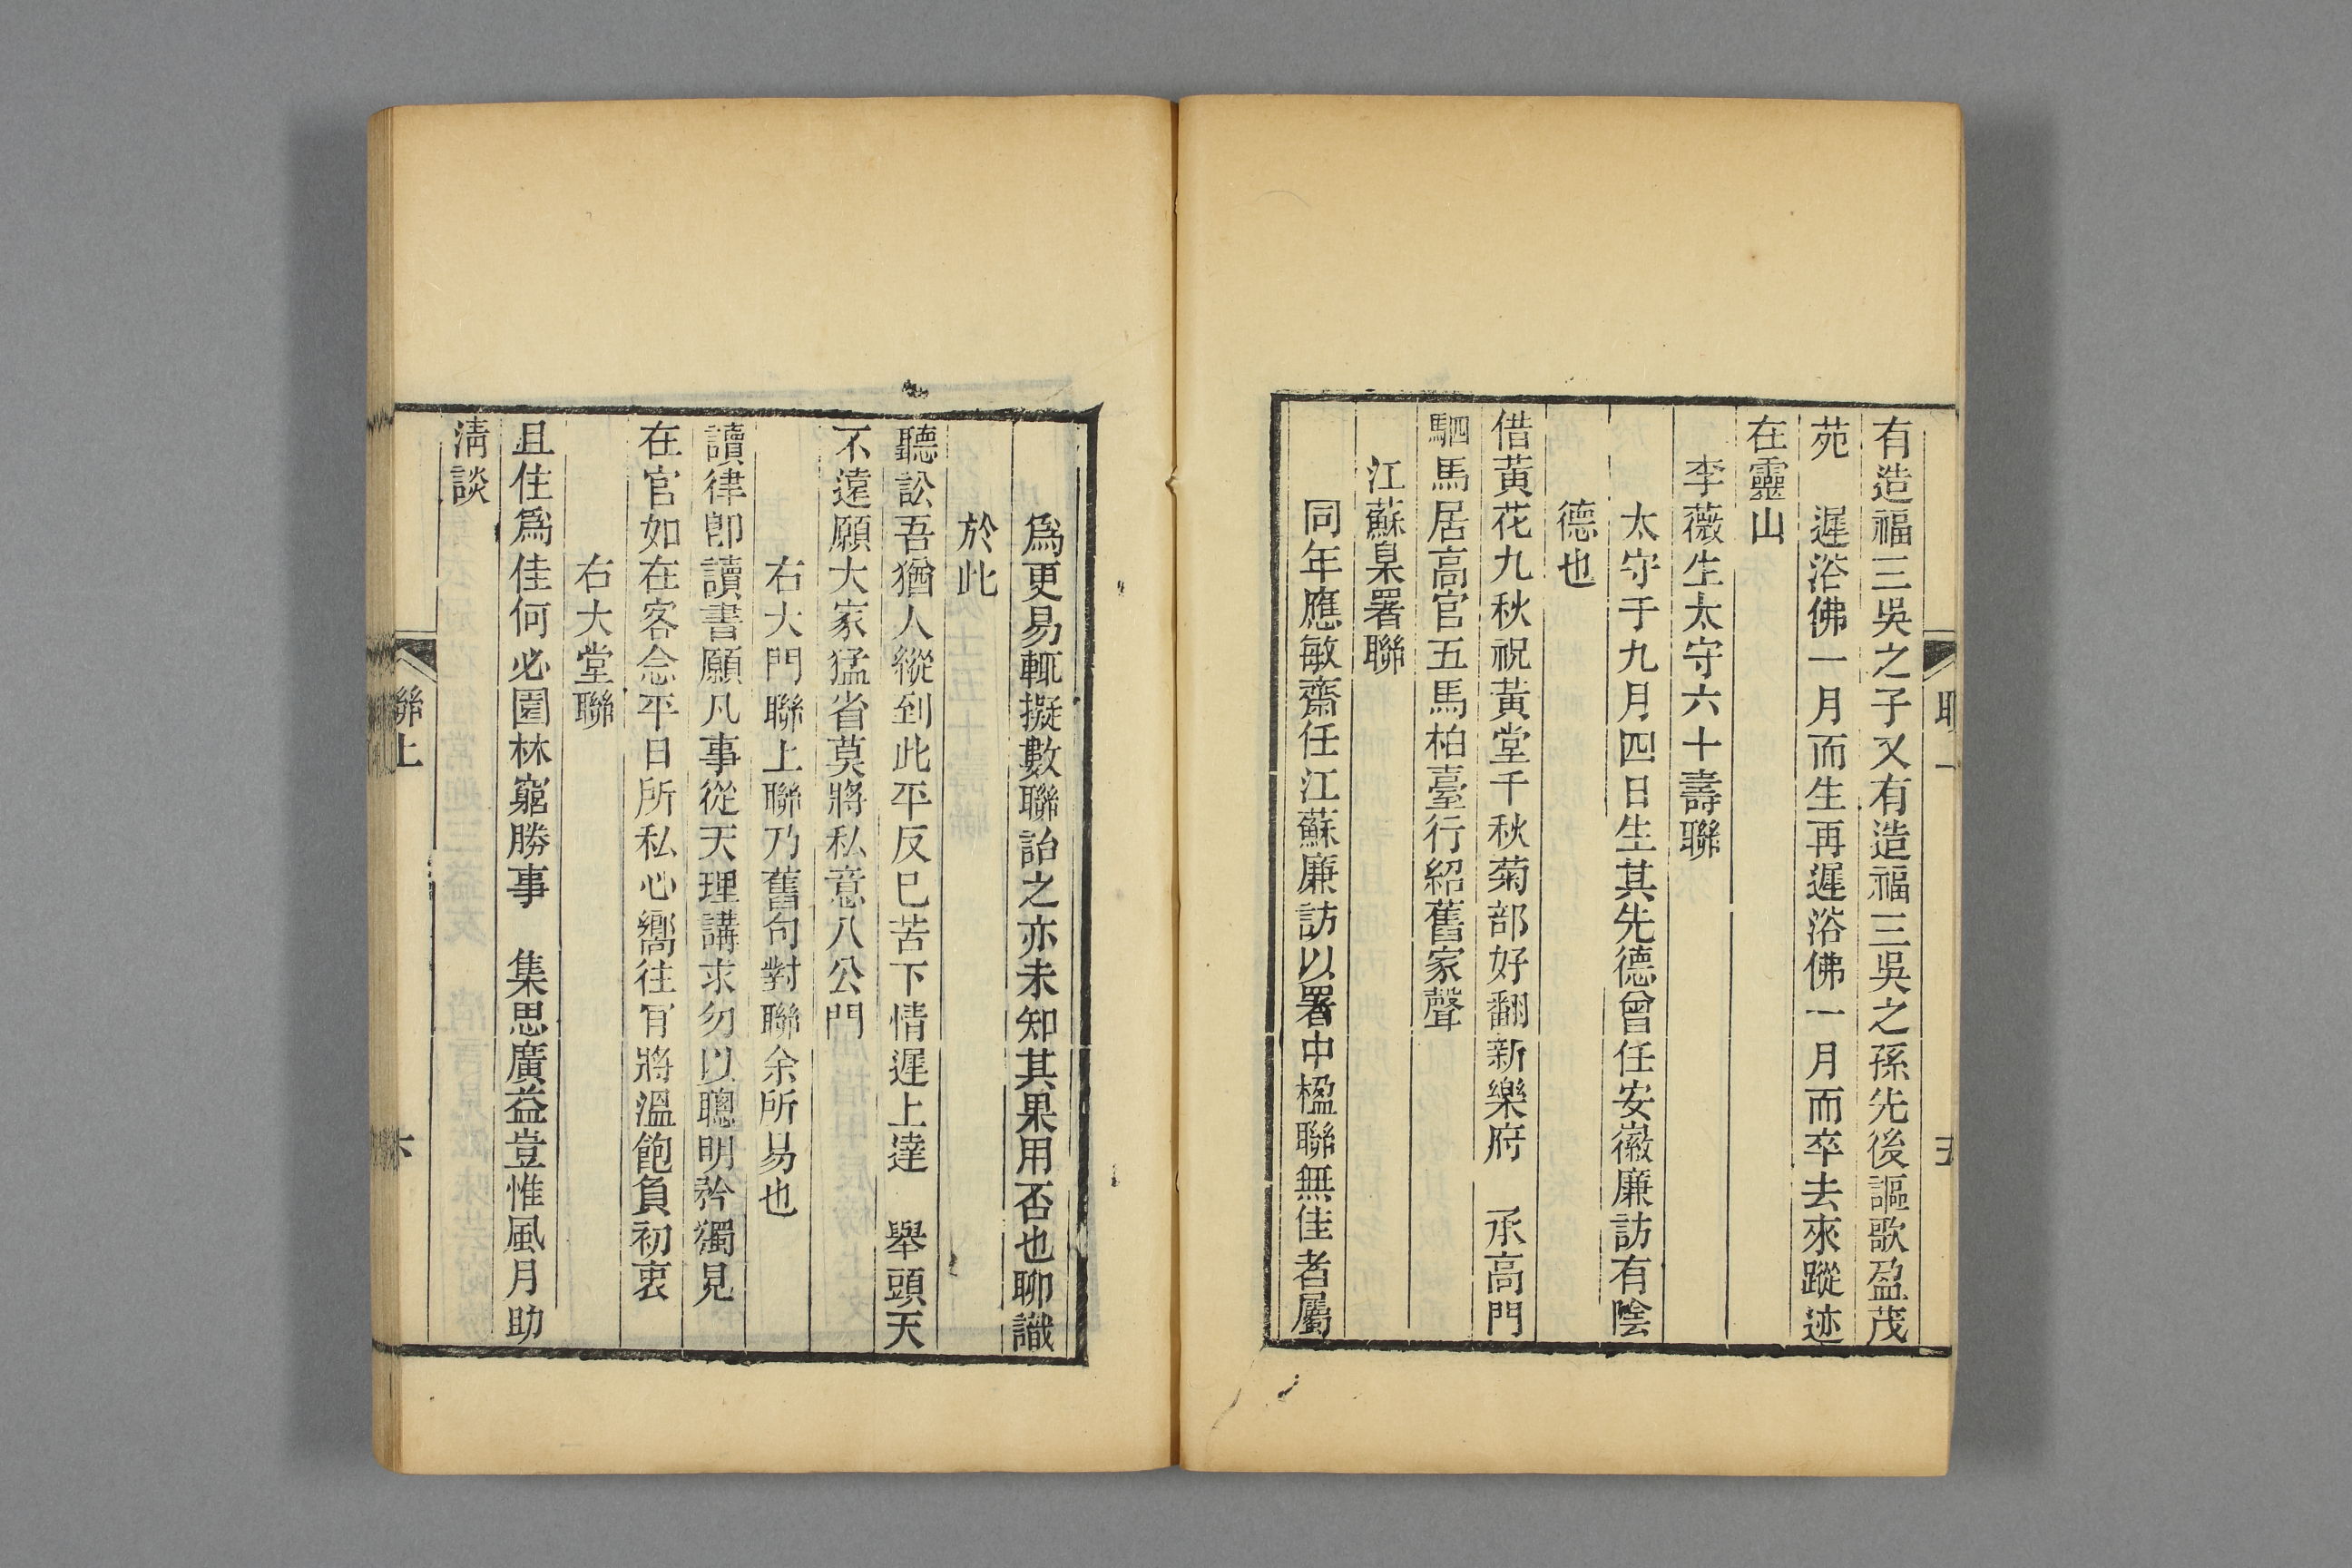 有造福三吳之子又有造福三吳之孫先後謳歌盈茂
苑　遲浴佛一月而生再遲浴佛一月而卒去來蹤迹
在靈山
李薇生太守六十壽聯
太守于九月四日生其先德曾任安徽廉訪有陰
德也
借黃花九秋祝黃堂千秋菊部好翻新樂府　承高門
駟馬居高官五馬柏臺行紹舊家聲
江蘇臬署聯
同年應敏齋任江蘇廉訪以署中楹聯無佳者屬
為更易輒擬數聯詒之亦未知其果用否也聊識
於此
聽訟吾猶人縱到此平反已苦下情遲上達　舉頭天
不遠願大家猛省莫將私意入公門
右大門聯上聯乃舊句對聯余所易也
讀律卽讀書願凡事從天理講求勿以聰明矜獨見
在官如在客念平日所私心嚮往肎將溫飽負初衷
右大堂聯
且住爲佳何必園林窮勝事　集思廣益豈惟風月助
淸談
聯上
六